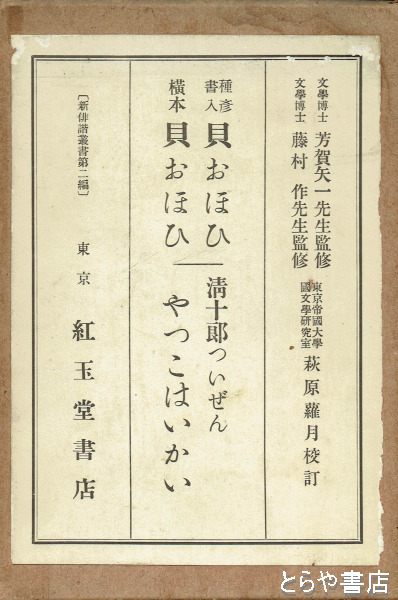 文學博士 芳賀矢一先生監修
文學博士 藤村 作先生監修
東京帝國大學
國文學研究室
萩原蘿月校訂
種彦
書入
貝おほひ
清十郎ついぜん
横本 貝おほひ
やつこはいかい
〔新俳諧叢書第二編〕
東京 紅玉堂書店
とらや書店